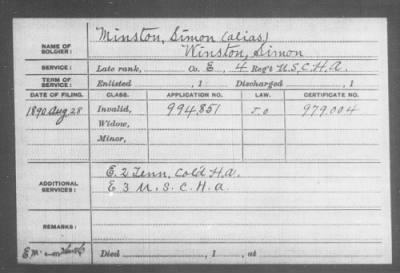 NAME OF SOLDIER: Minston, Simon (alias)
Winston, Simon
SERVICE: Late rank, Co. E, 4 Reg't U.S.C.H.A.
TERM OF SERVICE: Enlisted , 1 Discharged , 1
DATE OF FILING. CLASS. APPLICATION NO. LAW. CERTIFICATE NO.
1890 Aug 28 Invalid, 994,851 979.004
Widow,
Minor,
ADDITIONAL SERVICES: E. 2 Tenn. Col'd H.A.
E 3 U.S.C.H.A.
REMARKS:
Died , 1 , at